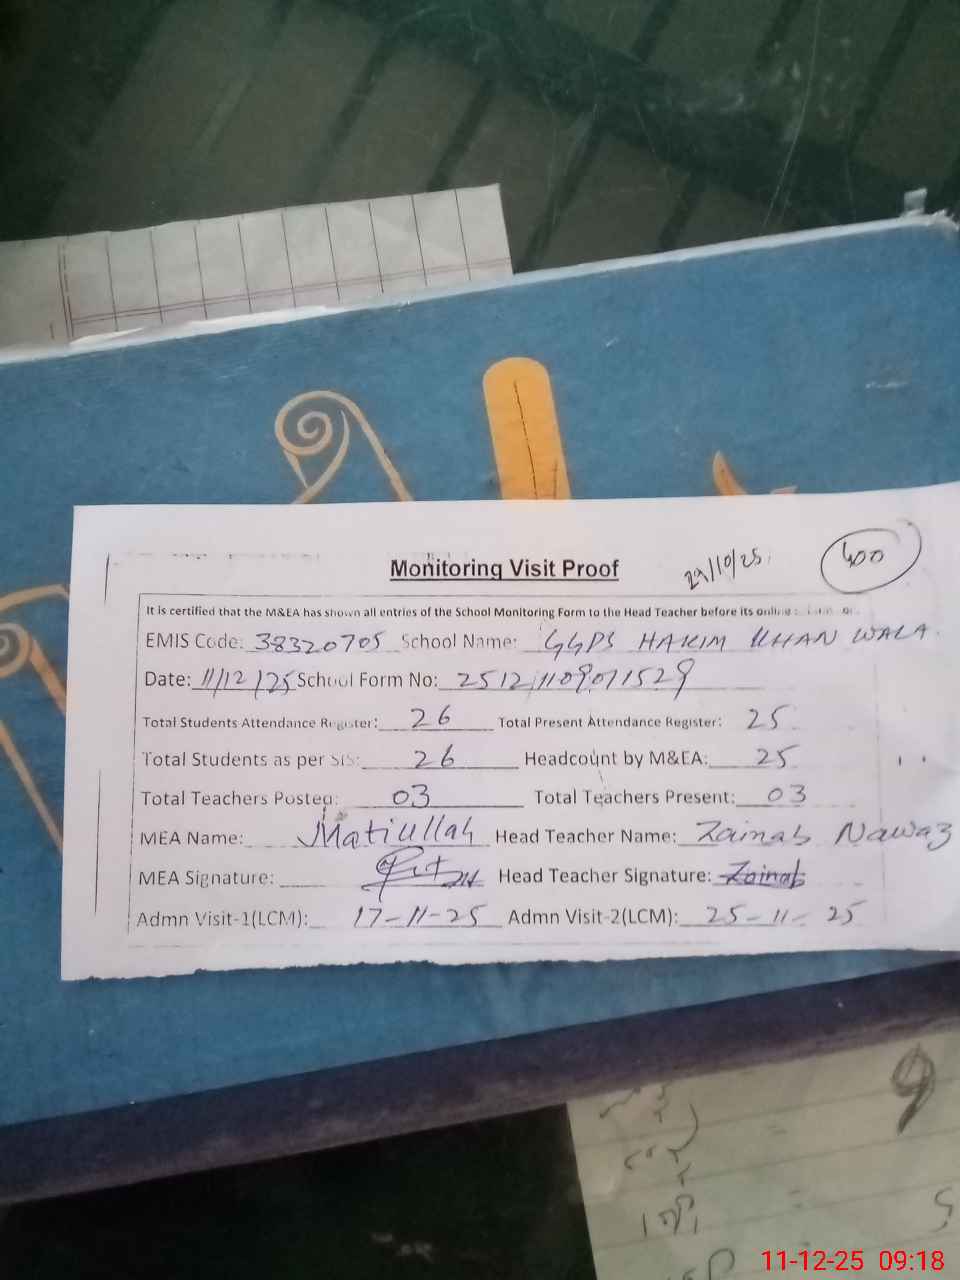 Monitoring Visit Proof
29/10/25
400
It is certified that the M&EA has shown all entries of the School Monitoring Form to the Head Teacher before its online
EMIS Code: 38320705 School Name: GGPS HAKIM KHAN WALA.
Date: 11/12/25 School Form No: 25121109071529
Total Students Attendance Register: 26 Total Present Attendance Register: 25
Total Students as per SIS: 26 Headcount by M&EA: 25
Total Teachers Posted: 03 Total Teachers Present: 03
MEA Name: Matiullah Head Teacher Name: Zainab Nawaz
MEA Signature: Head Teacher Signature: Zainab
Admn Visit-1(LCM): 17-11-25 Admn Visit-2(LCM): 25-11-25
9
11-12-25 09:18